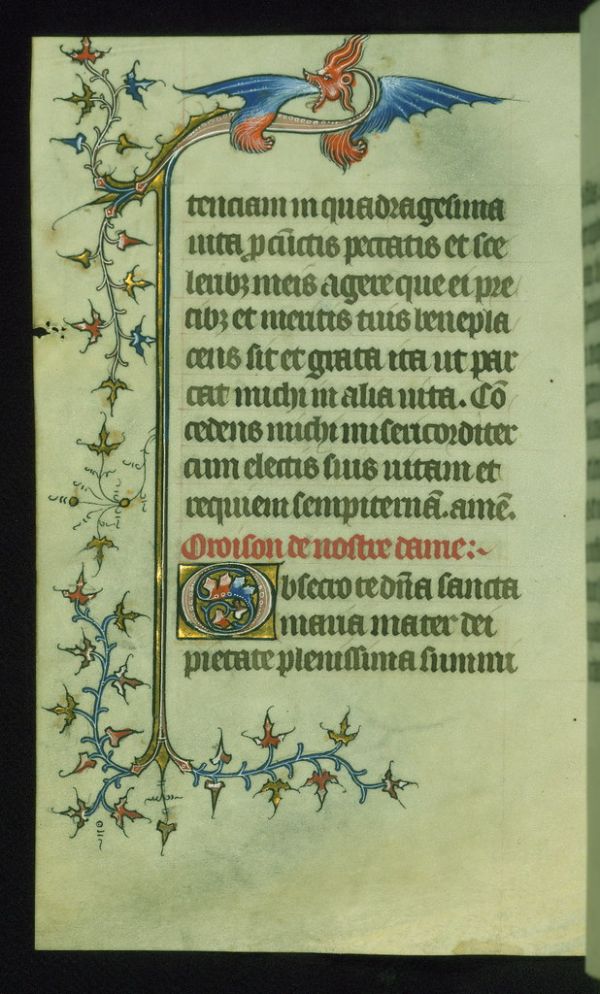 tenciam in quadragesima
uita ꝓ cūctis peccatis et sce
leribꝫ meis agere que ei pre
cibꝫ et meritis tuis benepla
cens sit et grata ita ut par
cat michi in alia uita. Cō
cedens michi misericorditer
cum electis suis uitam et
requiem sempiternā. amē.
Oroison de nostre dame:~
Obsecro te dn̄a sancta
maria mater dei
pietate plenissima summi